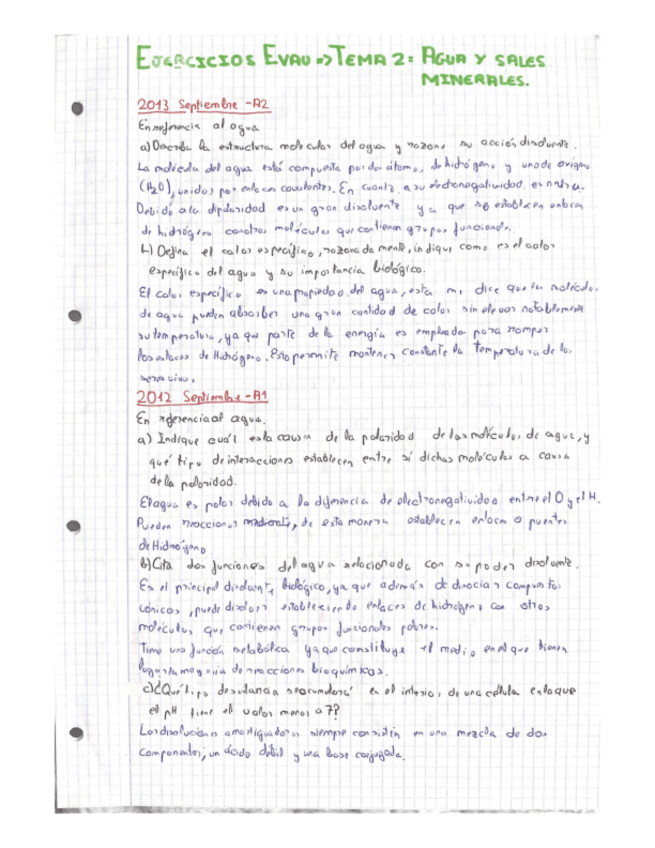 EJERCICIOS EVAU => TEMA 2: AGUA Y SALES
MINERALES.
2013 Septiembre -A2
En referencia al agua
a) Describa la estructura molecular del agua y razone su acción disolvente.
La molécula del agua está compuesta por dos átomos de hidrógeno y uno de oxígeno
(H₂O), unidos por enlaces covalentes. En cuanto a su electronegatividad, es neutra.
Debido a la dipolaridad es un gran disolvente ya que se establecen enlaces
de hidrógeno con otras moléculas que contienen grupos funcionales.
b) Defina el calor específico, razonadamente, indique como es el calor
específico del agua y su importancia biológica.
El calor específico es una propiedad del agua, esta me dice que las moléculas
de agua pueden absorber una gran cantidad de calor sin elevar notablemente
su temperatura, ya que parte de la energía es empleada para romper
los enlaces de Hidrógeno. Esto permite mantener constante la temperatura de los
seres vivos.
2012 Septiembre -A1
En referencia al agua.
a) Indique cuál es la causa de la polaridad de las moléculas de agua, y
qué tipo de interacciones establecen entre sí dichas moléculas a causa
de la polaridad.
El agua es polar debido a la diferencia de electronegatividad entre el O y el H.
Pueden reaccionar de esta manera establecen enlaces o puentes
de Hidrógeno
b) Cita dos funciones del agua relacionada con su poder disolvente.
Es el principal disolvente biológico, ya que además de disociar compuestos
iónicos, puede disolver estableciendo enlaces de hidrógeno con otras
moléculas que contienen grupos funcionales polares.
Tiene una función metabólica ya que constituye el medio en el que tienen
lugar la mayoría de reacciones bioquímicas.
c) ¿Qué tipo de sustancia se acumulará en el interior de una célula en la que
el pH tiene el valor menor a 7?
Las disoluciones amortiguadoras siempre consisten en una mezcla de dos
componentes; un ácido débil y una base conjugada.